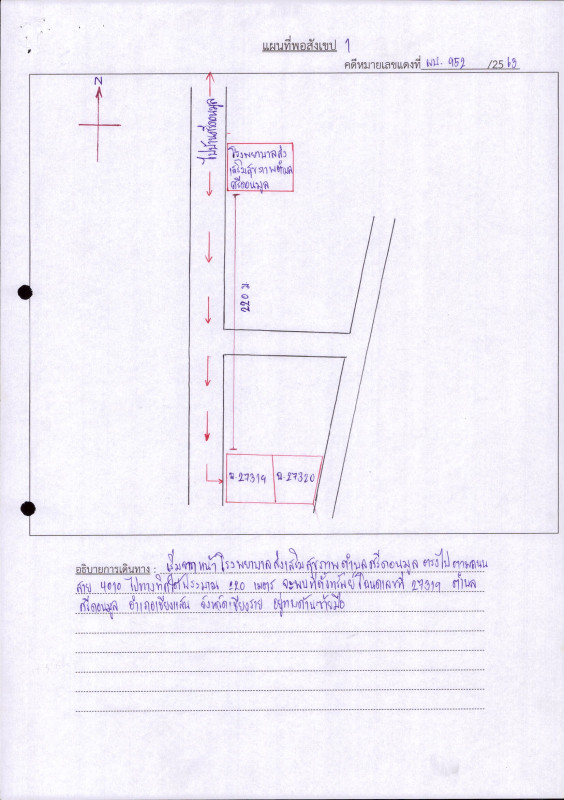 แผนที่พอสังเขป 1
คดีหมายเลขแดงที่ ผบ. 952 /2563
N
ไปบ้านศรีดอนมูล
โรงพยาบาลส่ง
เสริมสุขภาพตำบล
ศรีดอนมูล
220 ม
ฉ.27319
ฉ.27320
อธิบายการเดินทาง : เริ่มจากหน้าโรงพยาบาลส่งเสริมสุขภาพตำบลศรีดอนมูล ตรงไปตามถนน
สาย 4010 ไปทางทิศใต้ประมาณ 220 เมตร จะพบที่ตั้งทรัพย์โฉนดเลขที่ 27319 ตำบล
ศรีดอนมูล อำเภอเชียงแสน จังหวัดเชียงราย อยู่ทางด้านซ้ายมือ